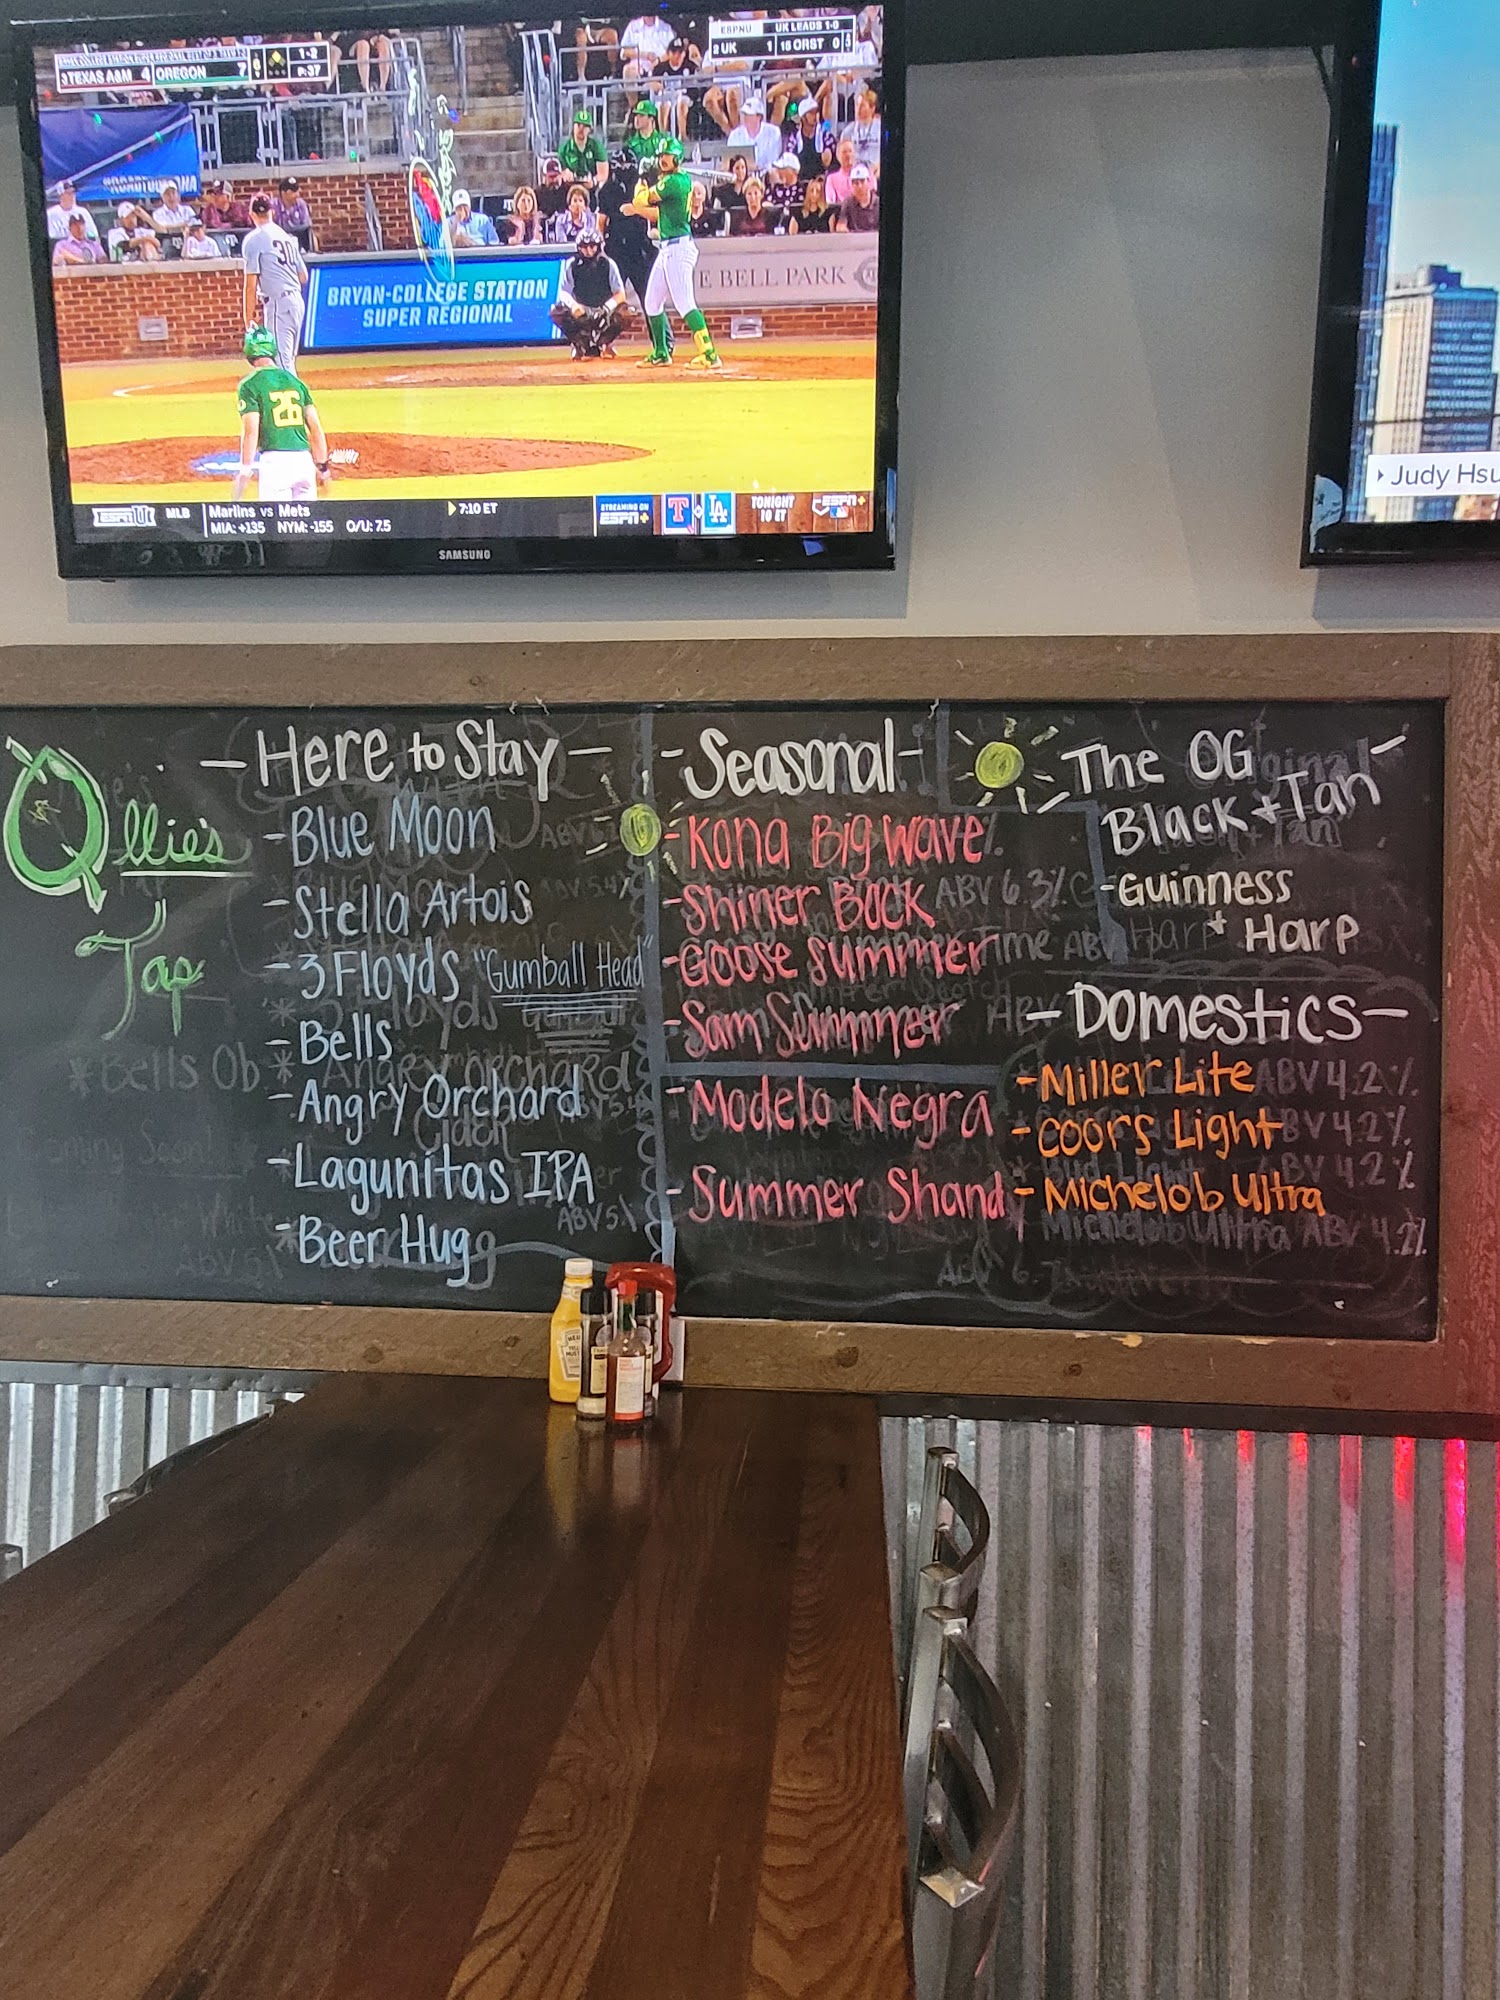 3 TEXAS A&M 4 OREGON 7 6 1-2
P:37
ESPNU UK LEADS 1-0
2 UK 1 15 ORST 0
30
BRYAN-COLLEGE STATION
SUPER REGIONAL
E BELL PARK
26
ESPNU MLB Marlins vs Mets 7:10 ET
MIA: +135 NYM: -155 O/U: 7.5
STREAMING ON
ESPN+
T LA
TONIGHT
10 ET
ESPN+
SAMSUNG
Judy Hsu
Ollie's
Tap
- Here to Stay -
- Blue Moon
- Stella Artois
- 3 Floyds "Gumball Head"
- Bells
- Angry Orchard
- Lagunitas IPA
- Beer Hug
- Seasonal -
- Kona Big Wave
- Shiner Bock
- Goose Summer
- Sam Summer
- Modelo Negra
- Summer Shand
The OG
Black + Tan
- Guinness
+ Harp
- Domestics -
- Miller Lite
- Coors Light
- Michelob Ultra
ABV 6.3%
Time ABV
ABV 4.2%
ABV 4.2%
ABV 4.2%
Michelob Ultra ABV 4.2%
* Bells Ob
Coming Soon!
ABV 5%